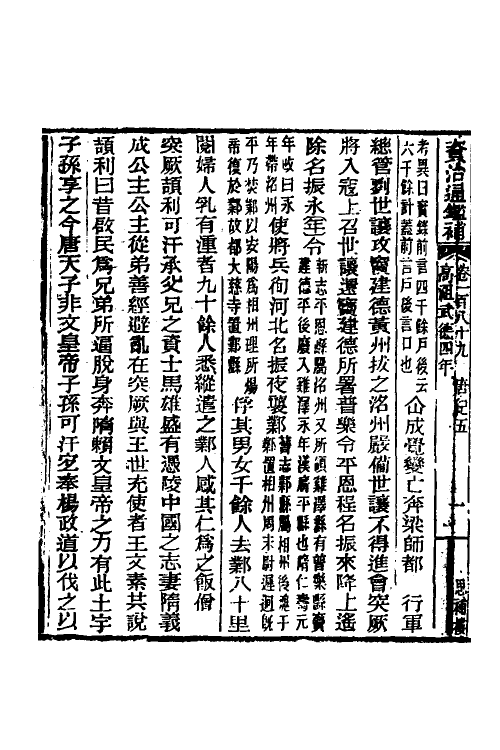 資治通鑑補 卷一百八十九 唐紀五
高祖武德四年
思補樓
考異曰實錄前言四千餘戶後云
六千餘計蓋前言戶後言口也
仚成覺變亡奔梁師都 行軍
總管劉世讓攻竇建德黃州拔之洺州嚴備世讓不得進會突厥
將入寇上召世讓還竇建德所署普樂令平恩程名振來降上遙
除名振永年令
新志平恩縣屬洺州又所領雞澤縣有普樂縣竇
建德平後廢入雞澤永年漢廣平縣也隋仁壽元
年改曰永年帶洺州
使將兵徇河北名振夜襲鄴
舊志鄴縣屬相州後魏于
鄴置相州周末尉遲迥旣
平乃焚鄴以安陽爲相州理所煬
帝復於鄴故都大慈寺置鄴縣
俘其男女千餘人去鄴八十里
閱婦人乳有湩者九十餘人悉縱遣之鄴人感其仁爲之飯僧
突厥頡利可汗承父兄之資士馬雄盛有憑陵中國之志妻隋義
成公主公主從弟善經避亂在突厥與王世充使者王文素共說
頡利曰昔啟民爲兄弟所逼脫身奔隋賴文皇帝之力有此土宇
子孫享之今唐天子非文皇帝子孫可汗宜奉楊政道以伐之以